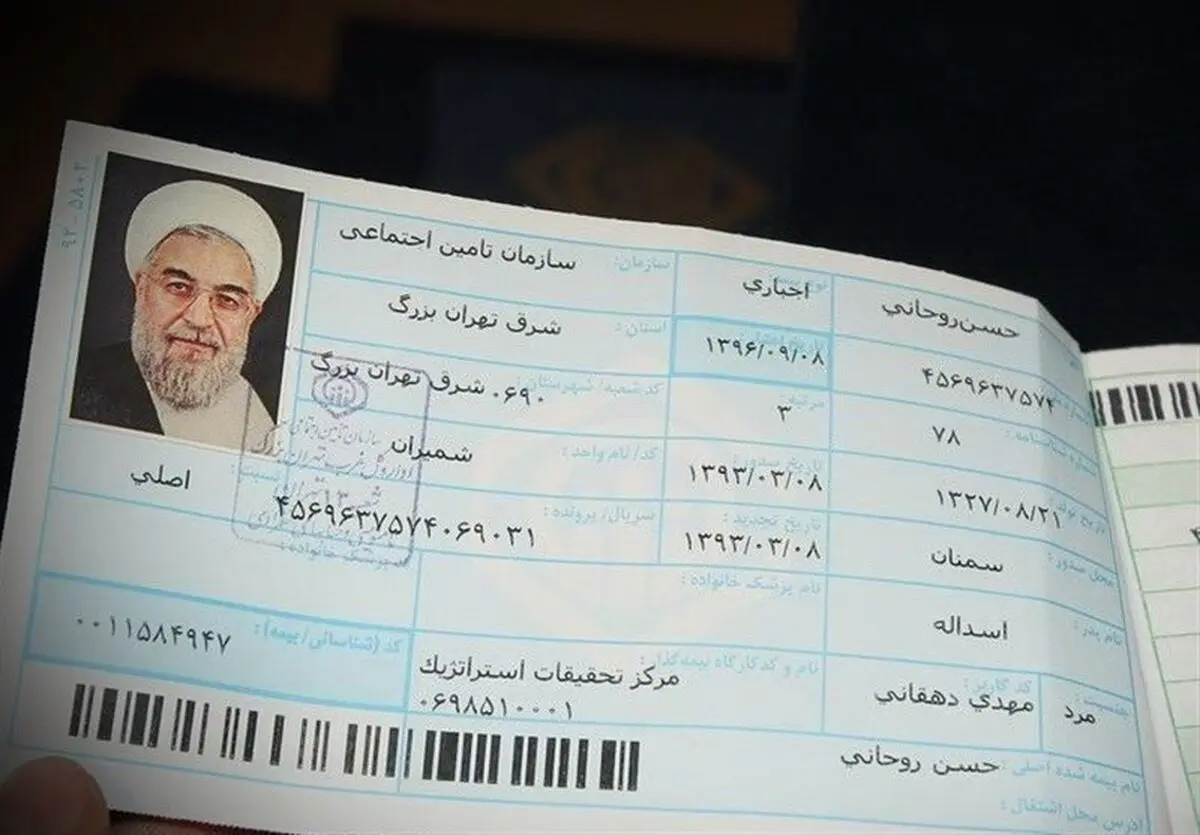 حسن‌روحاني
۴۵۶۹۶۳۷۵۷۴
۷۸
۱۳۲۷/۰۸/۲۱
محل صدور: سمنان
نام پدر: اسداله
جنسیت: مرد
کد کاربر: مهدي دهقاني
اجباري
۱۳۹۶/۰۹/۰۸
مرتبه: ۳
تاریخ صدور: ۱۳۹۳/۰۳/۰۸
تاریخ تجدید: ۱۳۹۳/۰۳/۰۸
سازمان: سازمان تامین اجتماعی
استان: شرق تهران بزرگ
کد شعبه/ شهرستان: ۰۶۹۰ شرق تهران بزرگ
کد/ نام واحد: شمیران
سریال/ پرونده: ۴۵۶۹۶۳۷۵۷۴۰۶۹۰۳۱
نسبت: اصلي
نام پزشک خانواده:
کد پزشک خانواده:
نام و کد کارگاه بیمه‌گذار: مرکز تحقیقات استراتژیك
۰۶۹۸۵۱۰۰۰۱
کد (شناسائی/ بیمه): ۰۰۱۱۵۸۴۹۴۷
نام بیمه شده اصلی: حسن روحاني
آدرس محل اشتغال:
۹۲ - ۵۸۰۲